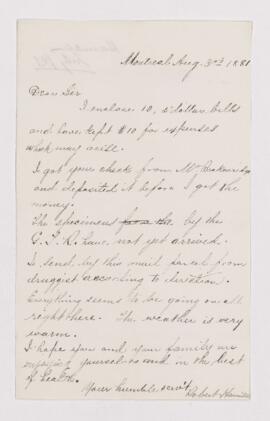 Montreal Aug. 3rd 1881
Dear Sir
I enclose 10, 5 dollar bills
and have kept $10 for expenses
which may arise.
I got your check from Mr
and deposited it before I got the
money.
The specimens from the by the
G. T. R. have not yet arrived.
I send by this mail parcel from
druggist according to direction.
Everything seems to be going on all
right here. The weather is very
warm.
I hope you and your family are
enjoying yourselves and in the best
of health.
Your humble servt
Robert